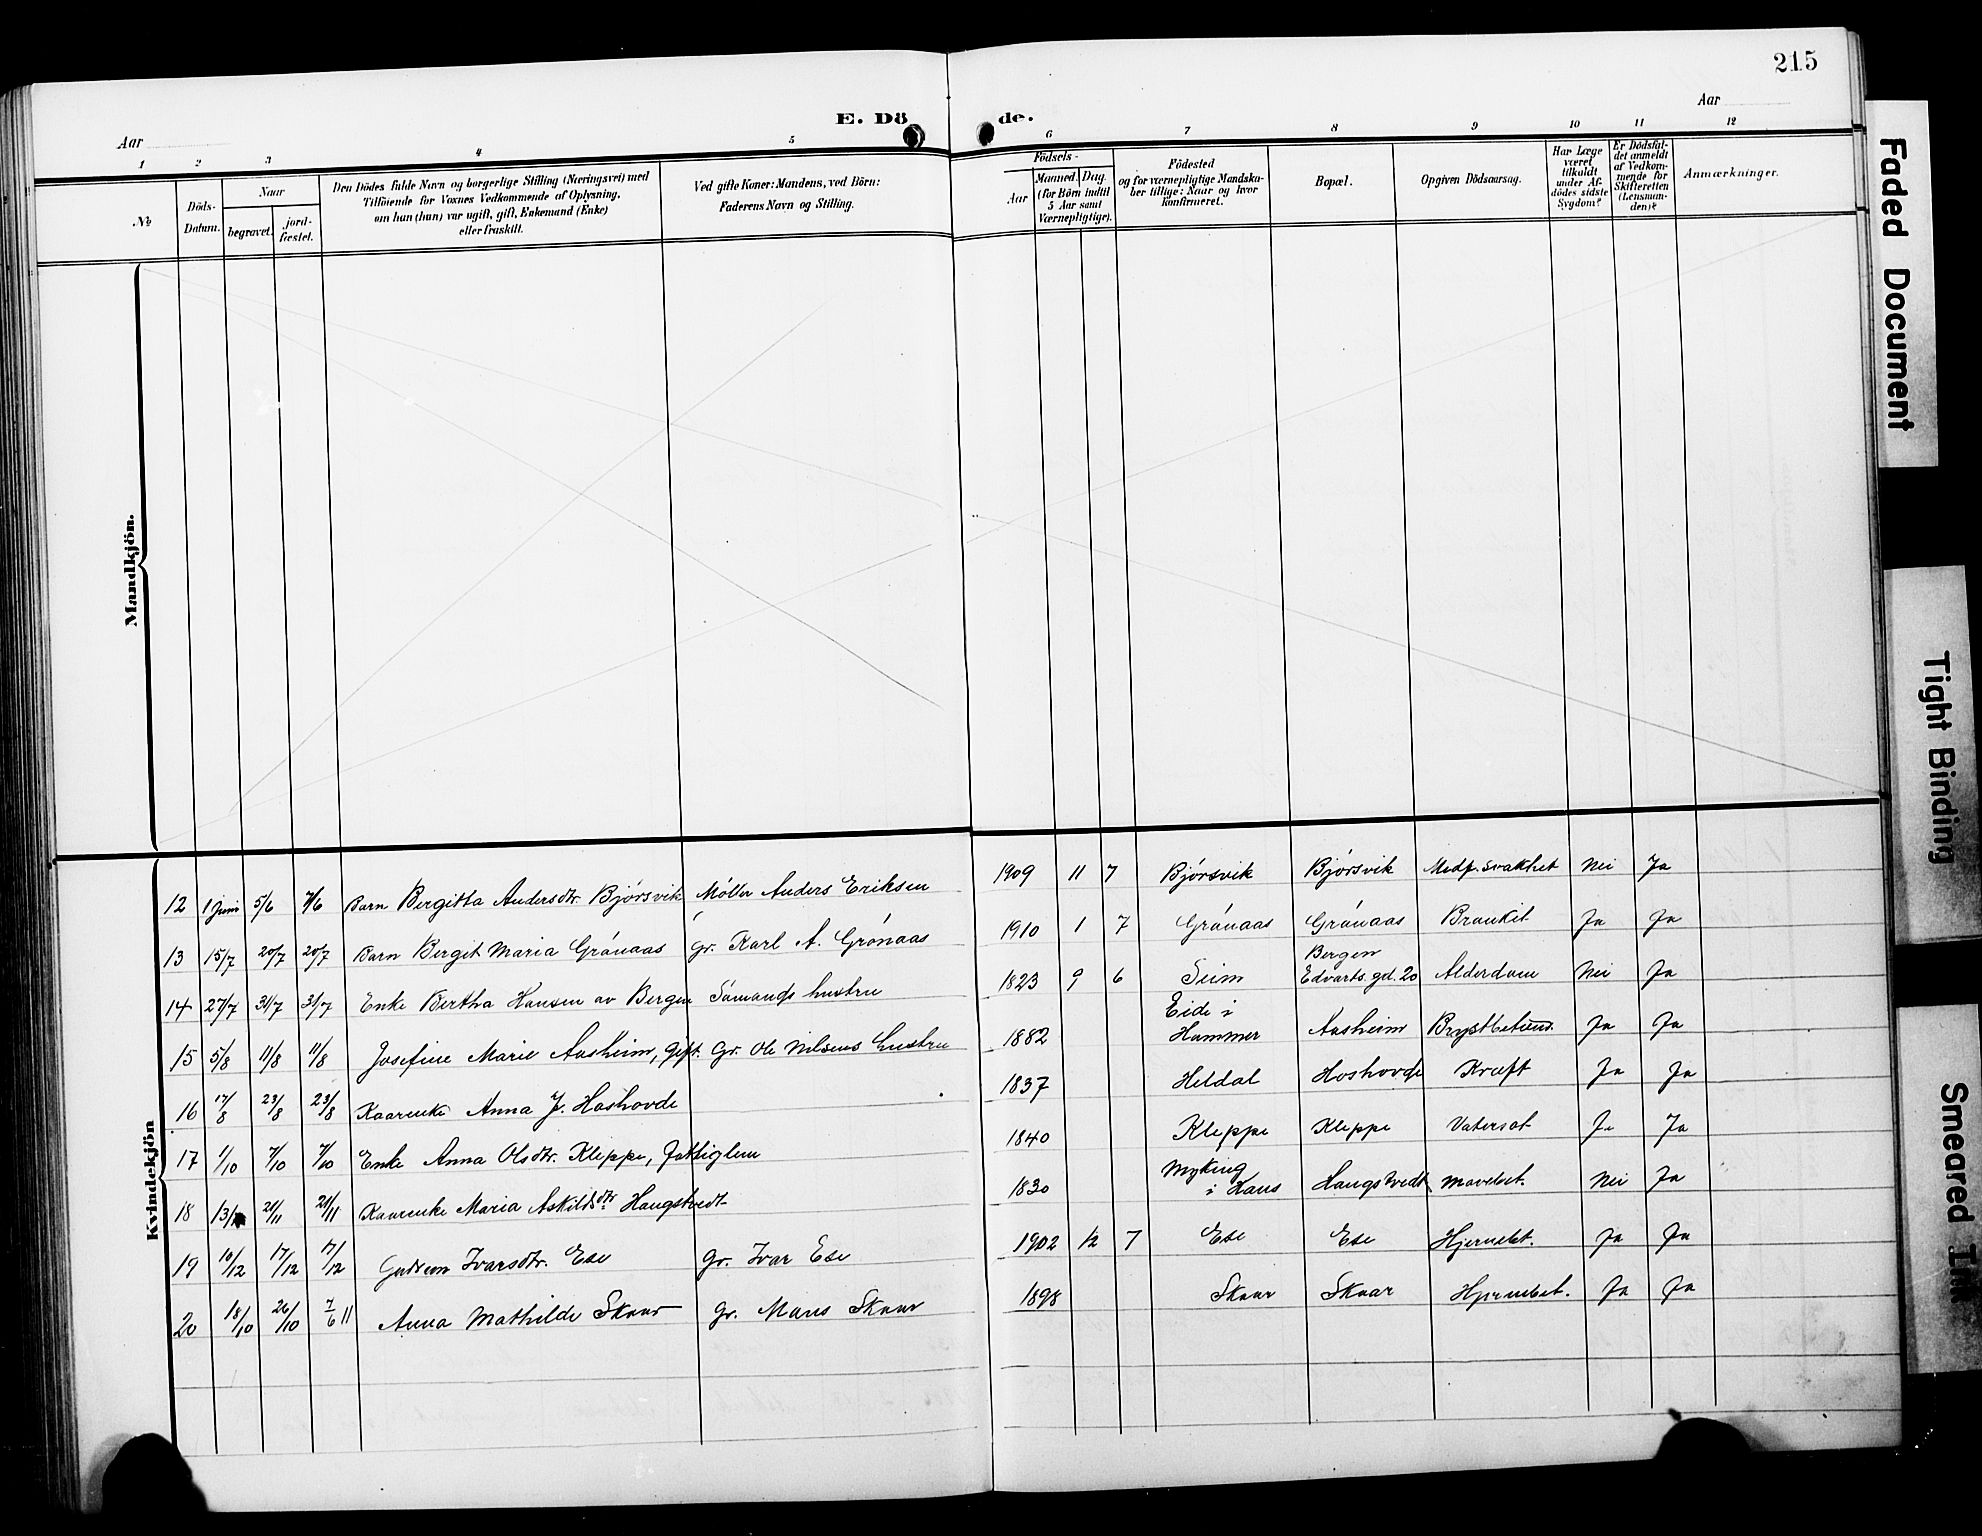 215
Aar
E. Dö
de.
Aar
1 2 3 4 5 6 7 8 9 10 11 12
№
Döds-
Datum.
Naar
begravet.
jord-
fæstet.
Den Dödes fulde Navn og borgerlige Stilling (Næringsvei) med
Tilföiende for Voxnes Vedkommende af Oplysning,
om han (hun) var ugift, gift, Enkemand (Enke)
eller fraskilt.
Ved gifte Koner: Mandens, ved Börn:
Faderens Navn og Stilling.
Födsels-
Aar
Maaned. Dag.
(for Börn indtil
5 Aar samt
Værnepligtige).
Födested
og for værnepligtige Mandska-
ber tillige: Naar og hvor
konfirmeret.
Bopæl.
Opgiven Dödsaarsag.
Har Læge
været
tilkaldt
under Af-
dödes sidste
Sygdom?
Er Dödsfal-
det anmeldt
af Vedkom-
mende for
Skifteretten
(Lensman-
den)?
Anmærkninger.
Mandkjön.
Kvindekjön
12 1 juni 5/6 7/6 Barn Bergitta Andersdtr. Bjørsvik Møller Anders Eriksen 1909 11 7 Bjørsvik Bjørsvik Medf. svakhet Nei Ja
13 15/7 20/7 20/7 Barn Bergit Maria Grónaas Gr. Karl A. Grónaas 1910 1 7 Grónaas Grónaas Bronkit Ja Ja
Bergen
14 27/7 31/7 31/7 Enke Bertha Hansen av Bergen Sømands hustru 1823 9 6 Seim Edvards gd. 20 Alderdom Nei Ja
Eide i
15 5/8 11/8 11/8 Josefine Marie Aasheim, gift. Gr. Ole Nilsens hustru 1882 Hammer Aasheim Brystbetænd. Ja Ja
16 17/8 23/8 23/8 Kaarenke Anna J. Hoshovde 1837 Heldal Hoshovde Kræft Ja Ja
17 1/10 7/10 7/10 Enke Anna Olsdtr. Kleppe, fattiglem 1840 Kleppe Kleppe Vatersot Ja Ja
Myking
18 13/11 21/11 21/11 Kaarenke Maria Askildsdtr Haugstvedt 1830 i Haus Haugstvedt mavebet. Nei Ja
19 10/12 17/12 17/12 Gudrun Ivarsdtr. Ese Gr. Ivar Ese 1902 12 7 Ese Ese Hjernebet. Ja Ja
20 18/10 26/10 7/6 11 Anna Mathilde Skaar Gr. Mans Skaar 1898 Skaar Skaar Hjernebet. Ja Ja
Faded Document
Tight Binding
Smeared Ink